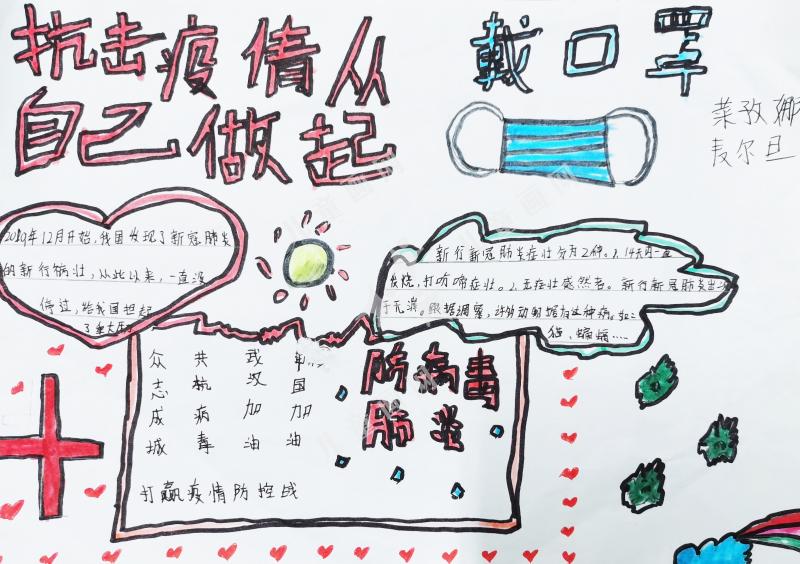 抗击疫情从
自己做起
戴口罩
菜孜娜
麦尔旦
2019年12月开始,我国发现了新冠肺炎
的新行病壮,从此以来,一直没
停过,给我国担起
了重大
新行新冠肺炎症壮分为2种。1.14天内一直
发烧,打喷嚏症壮。2.无症壮感然者。新行新冠肺炎出
于元滨。根据调察,许多动物都有这种病。如:
猫,蝙蝠……
众 共 武
志 抗 汉 国
成 病 加 加
城 毒 油 油
打赢疫情防控战
防病毒
肺炎